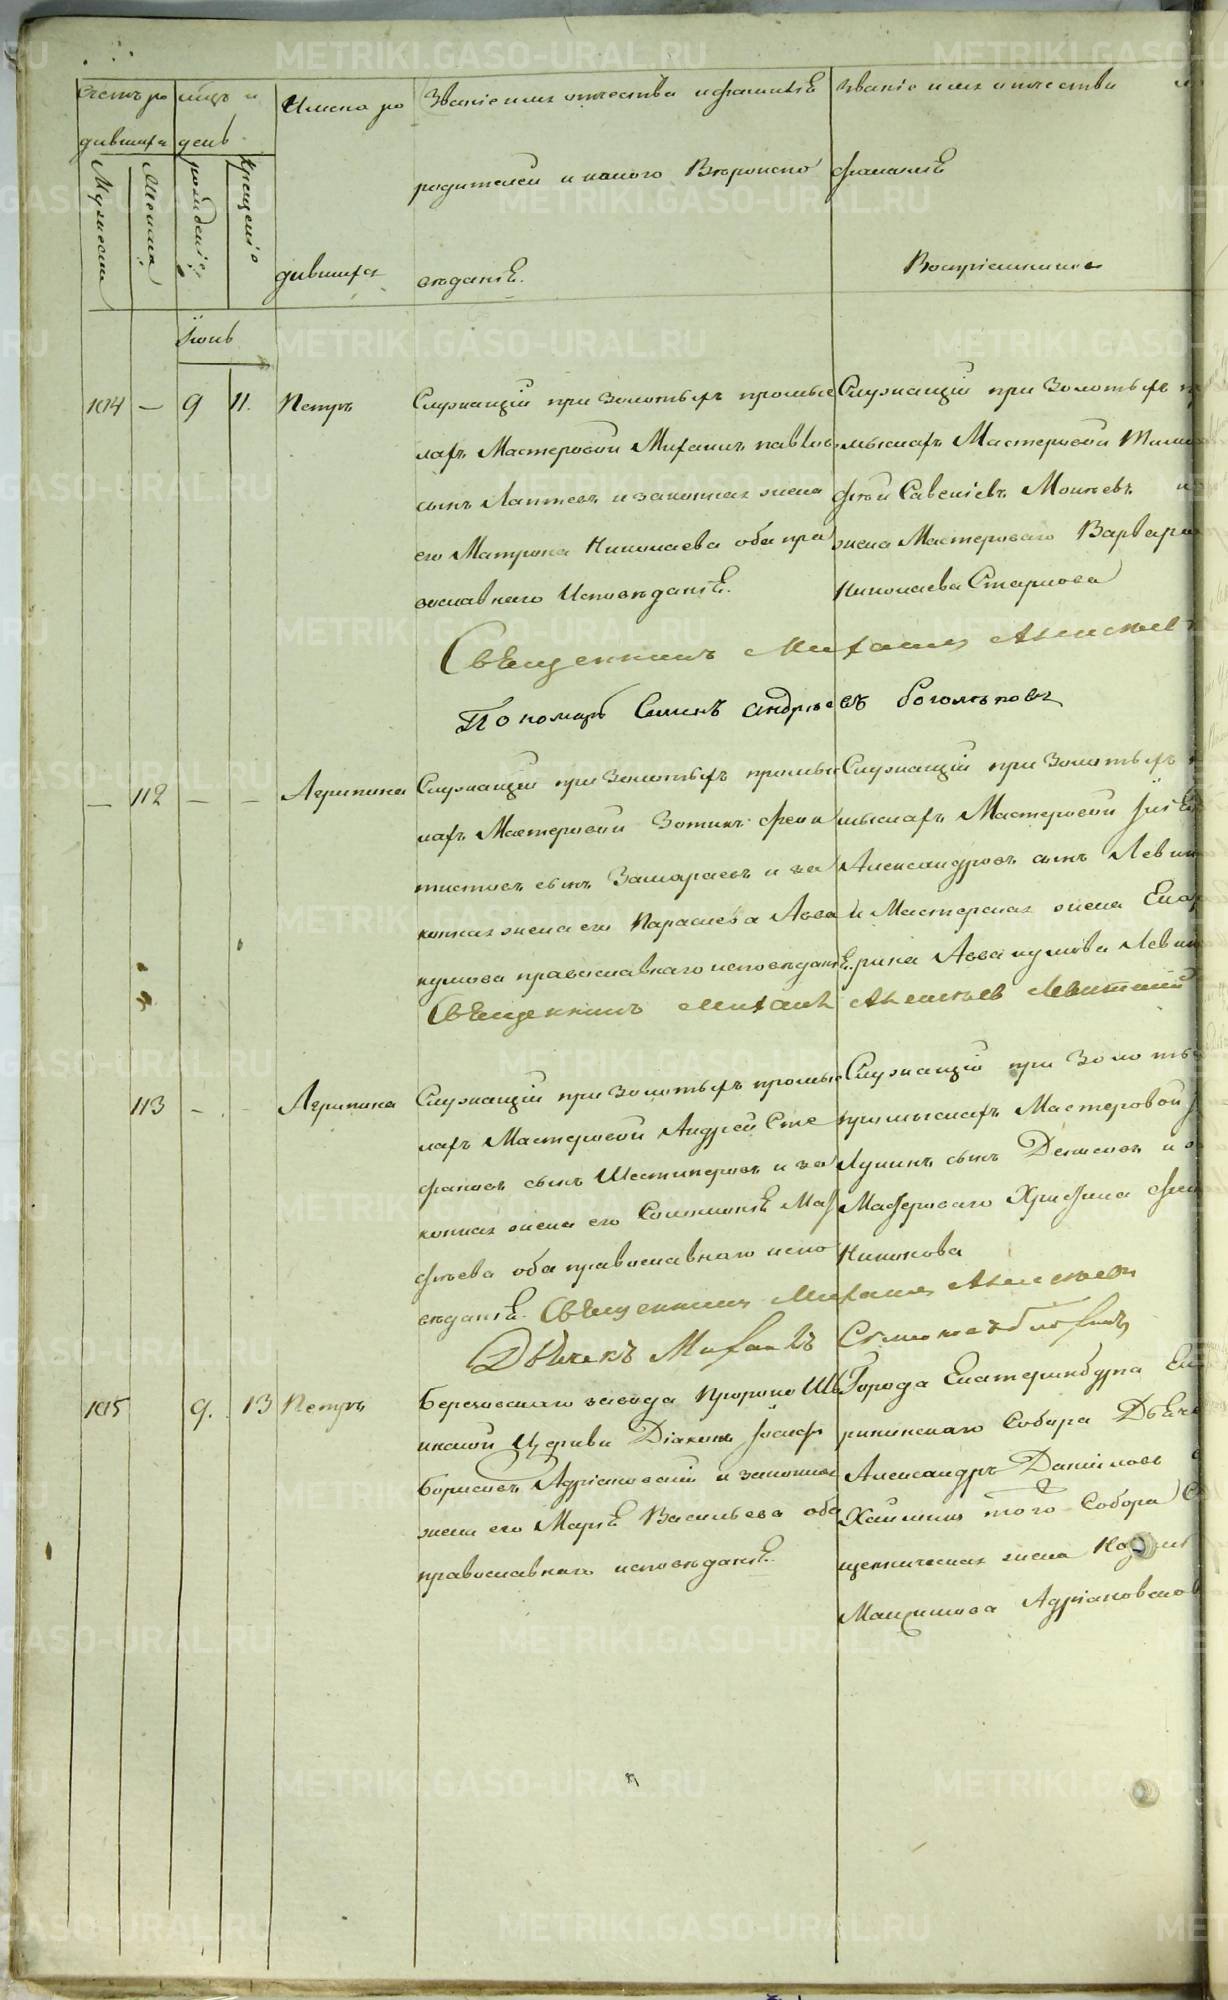 Счетъ ро
дившихся
Мѣсяцъ и
день
Мужеска
Женска
рожденіе
Крещеніе
Имена ро
дившихся
Званіе имя отчества и фамилѣ
родителей и какого Вѣроиспо
вѣданіѣ.
Званіе имя и отчества
фамиліѣ
Воспріемников
Іюнь
104 — 9 11. Петръ
Служащій при Золотыхъ промыс
лахъ Мастеровой Михаилъ павлов
сынъ Лаптевъ и законная жена
его Матрона Николаева оба пра
вославнаго Исповѣданіѣ.
Служащій при Золотыхъ п
мыслахъ Мастеровой Тимо
фѣй Савеліевъ Мокѣевъ и
жена Мастероваго Варвара
Николаева Старцова
Священникъ Михаилъ Алексѣевъ
Пономарь Симонъ Андрѣевъ боголѣповъ
— 112 — — Агрипина
Служащій при Золотыхъ промыс
лахъ Мастеровой Зотикъ Феок
тистовъ сынъ Замараевъ и за
конная жена его Парасева Авва
кумова православнаго исповѣданіѣ.
Служащій при Золотыхъ
мыслахъ Мастеровой
Александровъ сынъ Левин
и Мастерская жена Екат
рина Аввакумова Левин
Священникъ Михаилъ Алексѣевъ Левитскій
113 — - Агрипина
Служащій при Золотыхъ промыс
лахъ Мастеровой Андрей Сте
фановъ сынъ Шестиперовъ и за
конная жена его Соломониѣ Мат
фѣева оба православнаго испо
вѣданіѣ.
Служащій при Золоты
промыслахъ Мастеровой
Лукинъ сынъ Денисовъ и
Мастероваго Христина
Никонова
Священникъ Михаилъ Алексѣевъ
Дьячекъ Михаилъ
105 9. 13 Петръ
Березовскаго завода Пророко Иль
инской Церкви Діаконъ Іосифъ
Борисовъ Адріановскій и законная
жена его Маріѣ Васильева оба
православнаго исповѣданіѣ.
Города Екатеринбурга Ека
рининскаго Собора Дьяче
Александръ Даниловъ
того Собора Св
щенническая жена
Максимова Адріановска